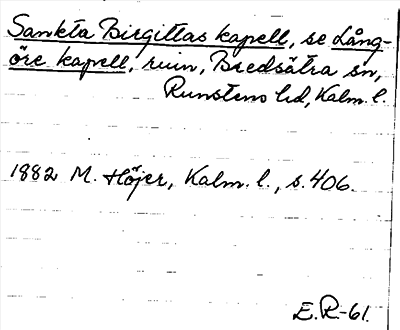 Sankta Birgittas kapell, se Lång-
öre kapell, ruin, Bredsätra sn,
Runstens hd, Kalm. l.
1882 M. Höjer, Kalm. l., s. 406.
E.R-61.